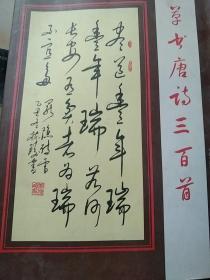 草书唐诗三百首
尽道丰年瑞
丰年瑞若何
长安有贫者为瑞
不宜多
罗隐诗雪